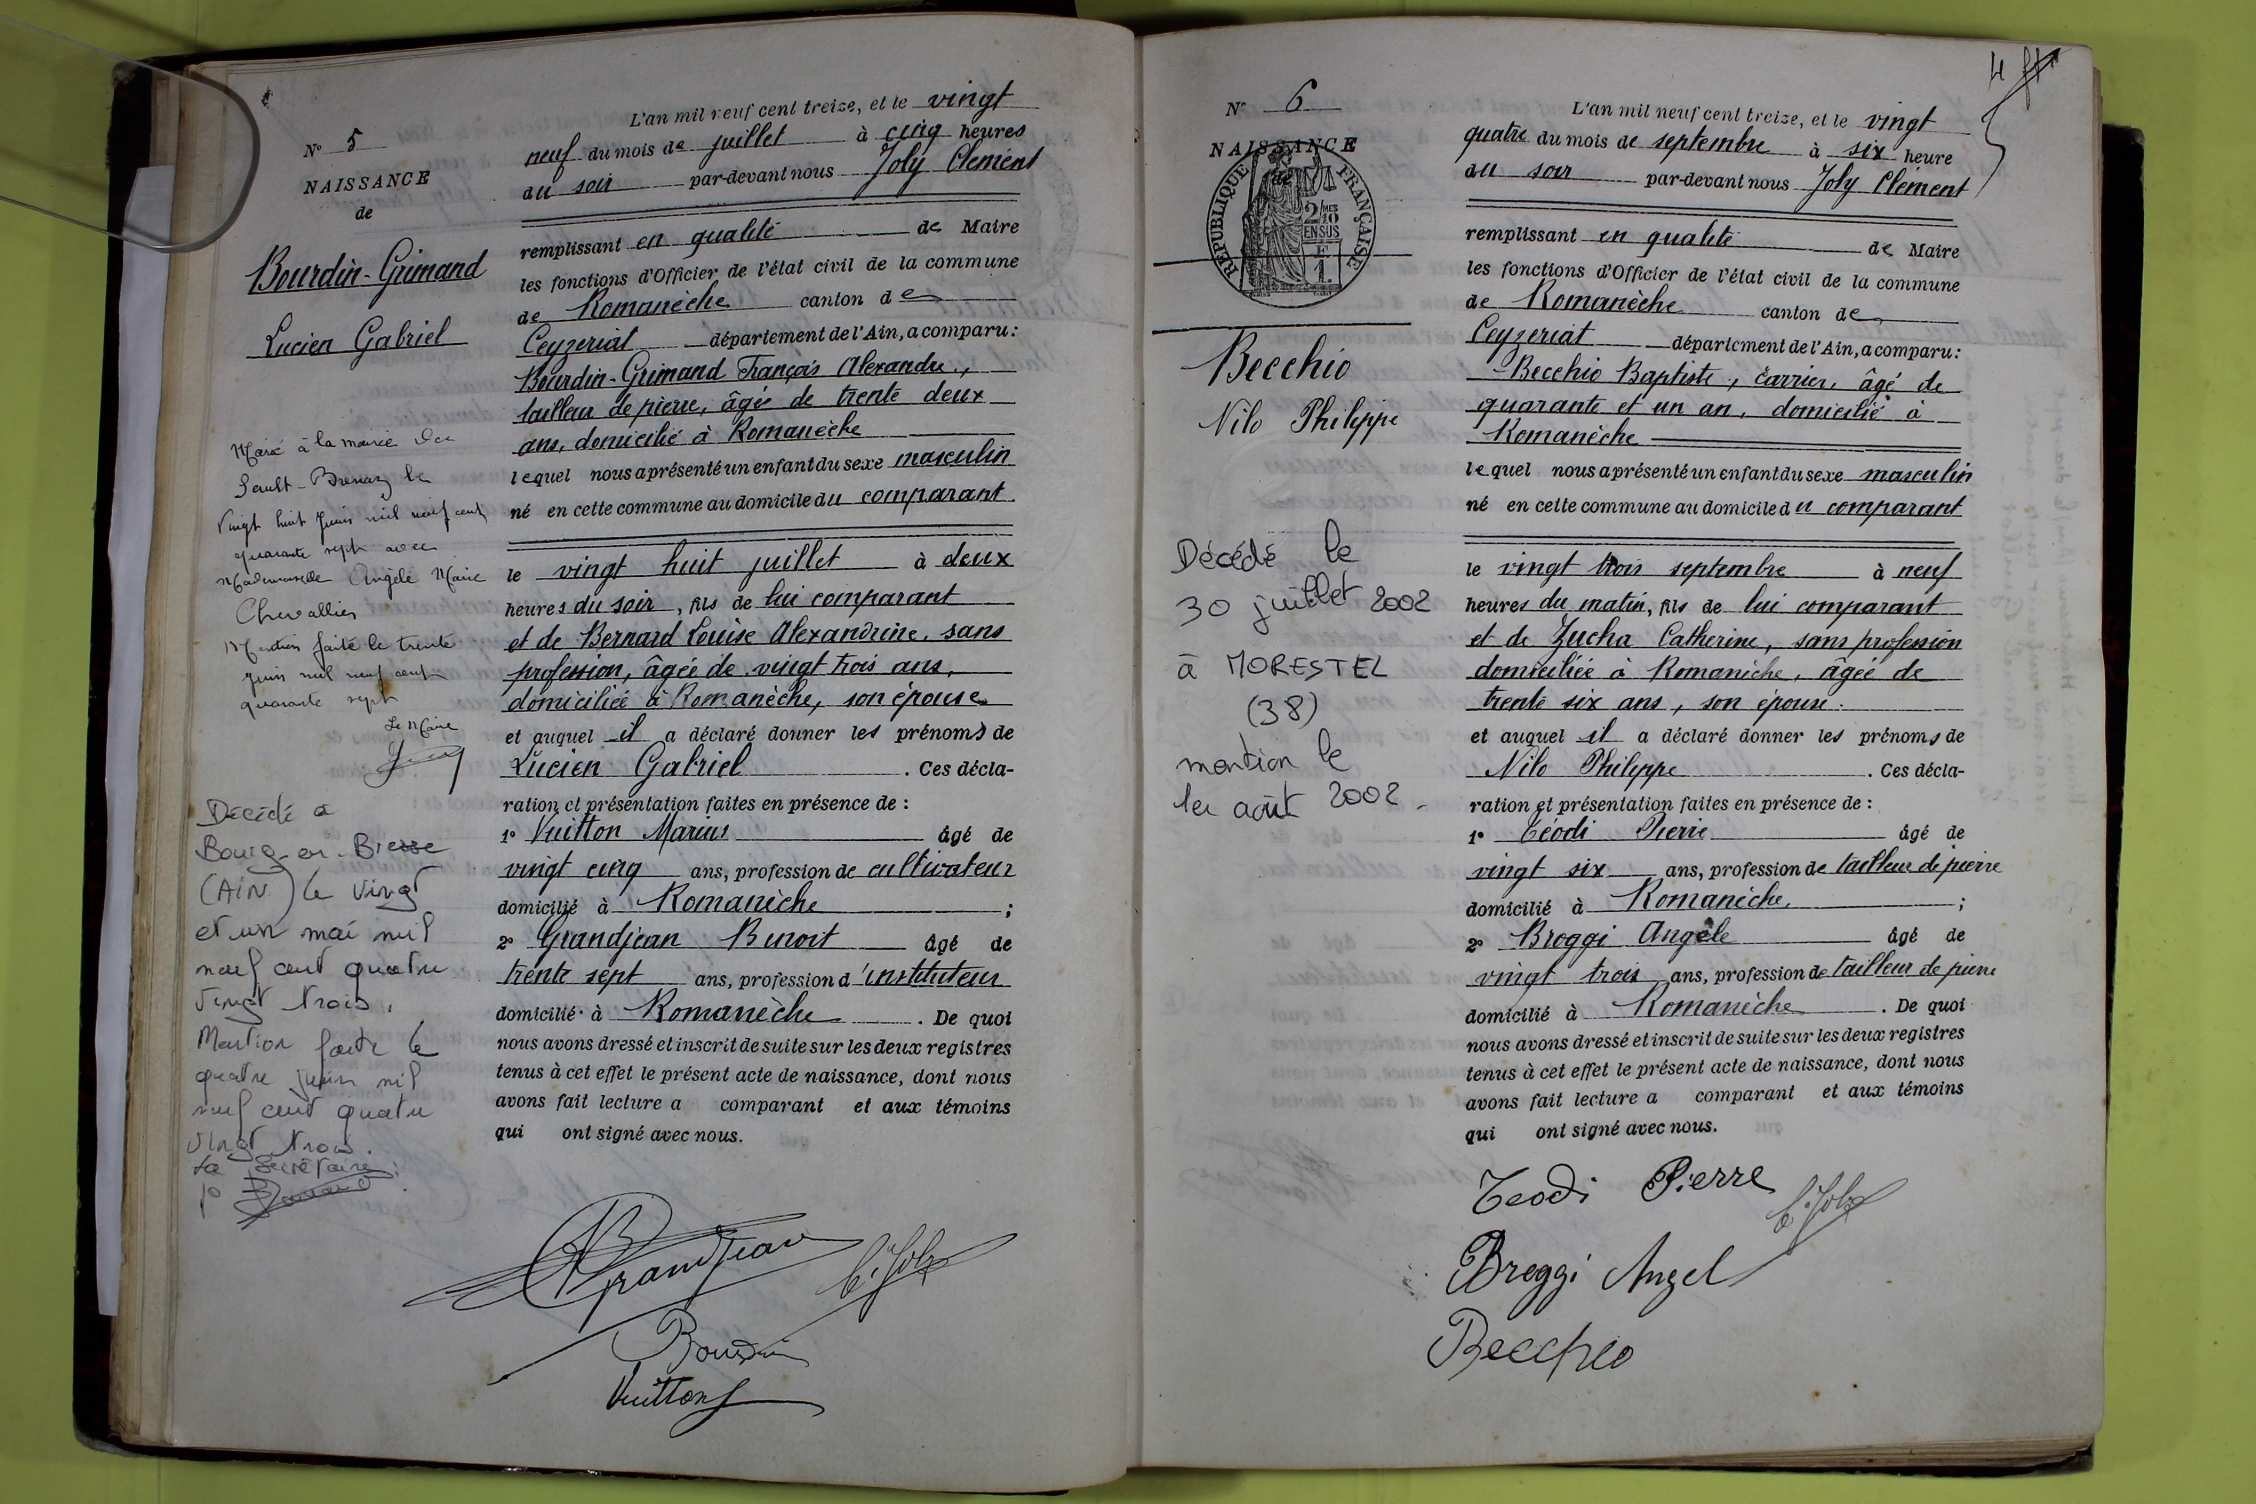 N° 5
NAISSANCE
de
Bourdin-Grimand
Lucien Gabriel
Marié à la mairie de
Sault-Brenaz le
vingt huit juin mil neuf cent
quarante sept avec
Mademoiselle Angèle Marie
Chevallier
Mention faite le trente
juin mil neuf cent
quarante sept
Le Maire
Décédé à
Bourg-en-Bresse
(AIN) le vingt
et un mai mil
neuf cent quatre
vingt trois.
Mention faite le
quatre juin mil
neuf cent quatre
vingt trois.
La Secrétaire
L'an mil neuf cent treize, et le vingt
neuf du mois de juillet à cinq heures
du soir par-devant nous Joly Clément
remplissant en qualité de Maire
les fonctions d'Officier de l'état civil de la commune
de Romanèche canton de
Ceyzériat département de l'Ain, a comparu:
Bourdin-Grimand François Alexandre,
tailleur de pierre, âgé de trente deux
ans, domicilié à Romanèche
lequel nous a présenté un enfant du sexe masculin
né en cette commune au domicile du comparant
le vingt huit juillet à deux
heures du soir, fils de lui comparant
et de Bernard Louise Alexandrine, sans
profession, âgée de vingt trois ans,
domiciliée à Romanèche, son épouse
et auquel il a déclaré donner les prénoms de
Lucien Gabriel. Ces décla-
ration et présentation faites en présence de :
1° Vuitton Marius âgé de
vingt cinq ans, profession de cultivateur
domicilié à Romanèche ;
2° Grandjean Benoit âgé de
trente sept ans, profession d'instituteur
domicilié à Romanèche. De quoi
nous avons dressé et inscrit de suite sur les deux registres
tenus à cet effet le présent acte de naissance, dont nous
avons fait lecture a comparant et aux témoins
qui ont signé avec nous.
Grandjean
C. Joly
Bourdin
Vuitton
N° 6
NAISSANCE
de
RÉPUBLIQUE FRANÇAISE
2/10 MES
EN SUS
E
1
Becchio
Nilo Philippe
Décédé le
30 juillet 2002
à MORESTEL
(38)
mention le
1er août 2002.
L'an mil neuf cent treize, et le vingt
quatre du mois de septembre à six heure
du soir par-devant nous Joly Clément
remplissant en qualité de Maire
les fonctions d'Officier de l'état civil de la commune
de Romanèche canton de
Ceyzériat département de l'Ain, a comparu:
Becchio Baptiste, carrier, âgé de
quarante et un an, domicilié à
Romanèche
lequel nous a présenté un enfant du sexe masculin
né en cette commune au domicile du comparant
le vingt trois septembre à neuf
heures du matin, fils de lui comparant
et de Zucha Catherine, sans profession
domiciliée à Romanèche, âgée de
trente six ans, son épouse.
et auquel il a déclaré donner les prénoms de
Nilo Philippe. Ces décla-
ration et présentation faites en présence de :
1° Téodi Pierre âgé de
vingt six ans, profession de tailleur de pierre
domicilié à Romanèche ;
2° Broggi Angèle âgé de
vingt trois ans, profession de tailleur de pierre
domicilié à Romanèche. De quoi
nous avons dressé et inscrit de suite sur les deux registres
tenus à cet effet le présent acte de naissance, dont nous
avons fait lecture a comparant et aux témoins
qui ont signé avec nous.
Teodi Pierre
C. Joly
Broggi Angel
Becchio